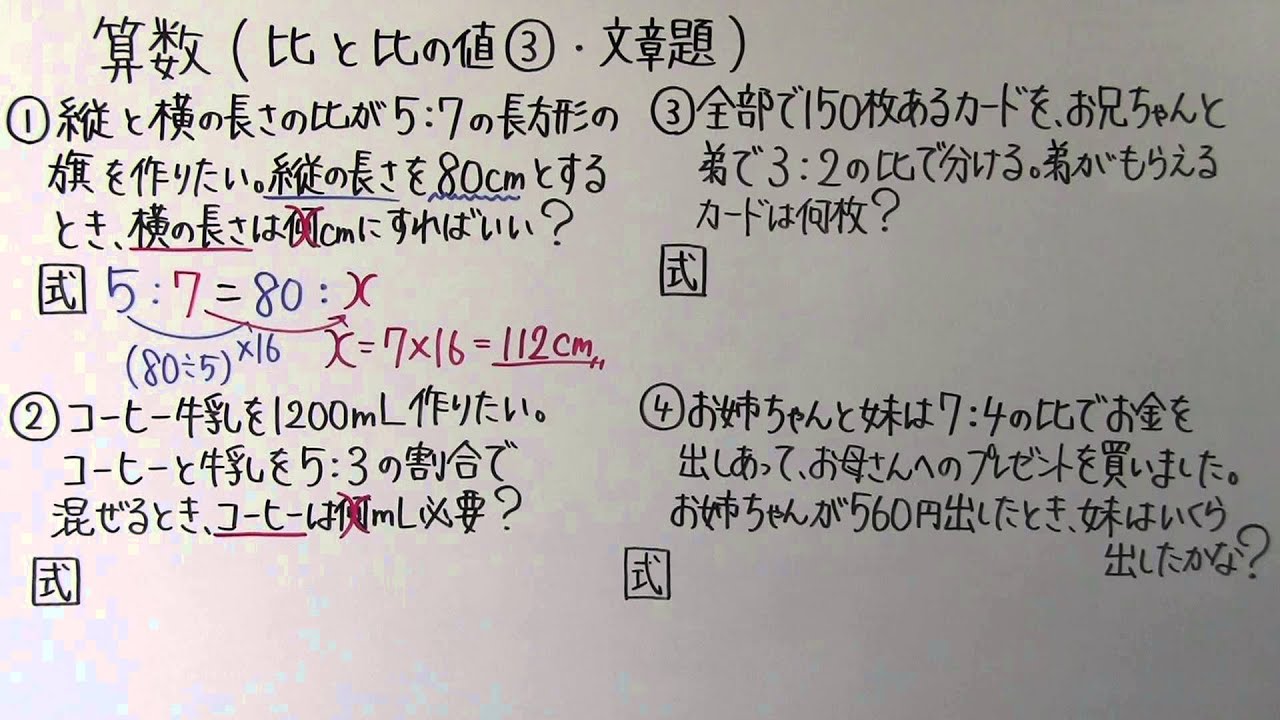 算数(比と比の値③・文章題)
①縦と横の長さの比が5:7の長方形の
旗を作りたい。縦の長さを80cmとする
とき、横の長さは何cmにすればいい?
式 5:7=80:x
(80÷5) ×16 x=7×16=112cm
②コーヒー牛乳を1200mL作りたい。
コーヒーと牛乳を5:3の割合で
混ぜるとき、コーヒーは何mL必要?
式
③全部で150枚あるカードを、お兄ちゃんと
弟で3:2の比で分ける。弟がもらえる
カードは何枚?
式
④お姉ちゃんと妹は7:4の比でお金を
出しあって、お母さんへのプレゼントを買いました。
お姉ちゃんが560円出したとき、妹はいくら
出したかな?
式